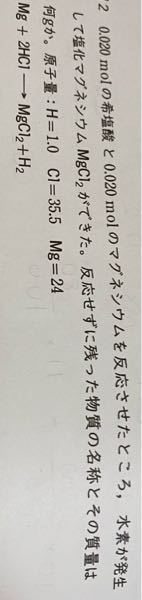 2 0.020 molの希塩酸と0.020 molのマグネシウムを反応させたところ，水素が発生
して塩化マグネシウムMgCl₂ができた。反応せずに残った物質の名称とその質量は
何gか。原子量：H＝1.0 Cl＝35.5 Mg＝24
Mg + 2HCl ⟶ MgCl₂+H₂